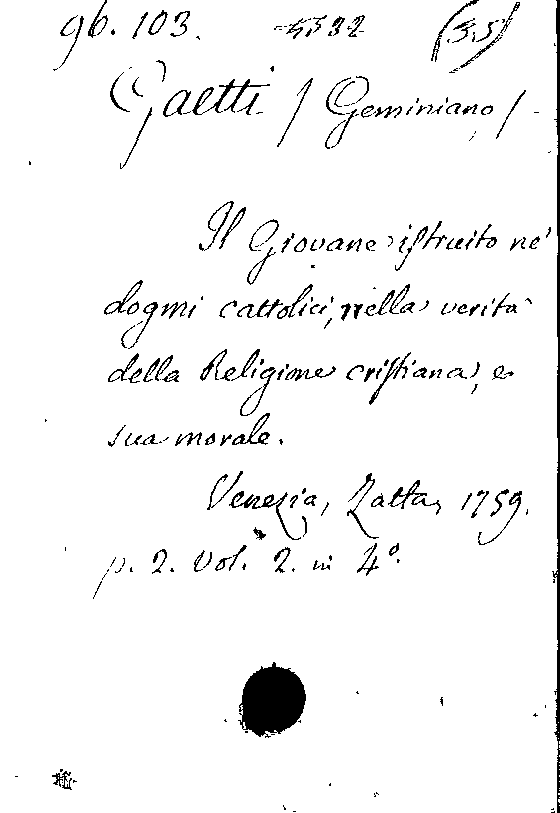 gb. 103. 5332 (3.5)
Gaetti / Geminiano /
Il Giovane istruito ne'
dogmi cattolici, nella verità
della Religione cristiana, e
sua morale.
Venezia, Zatta, 1759.
p. 2. Vol. 2. in 4º.